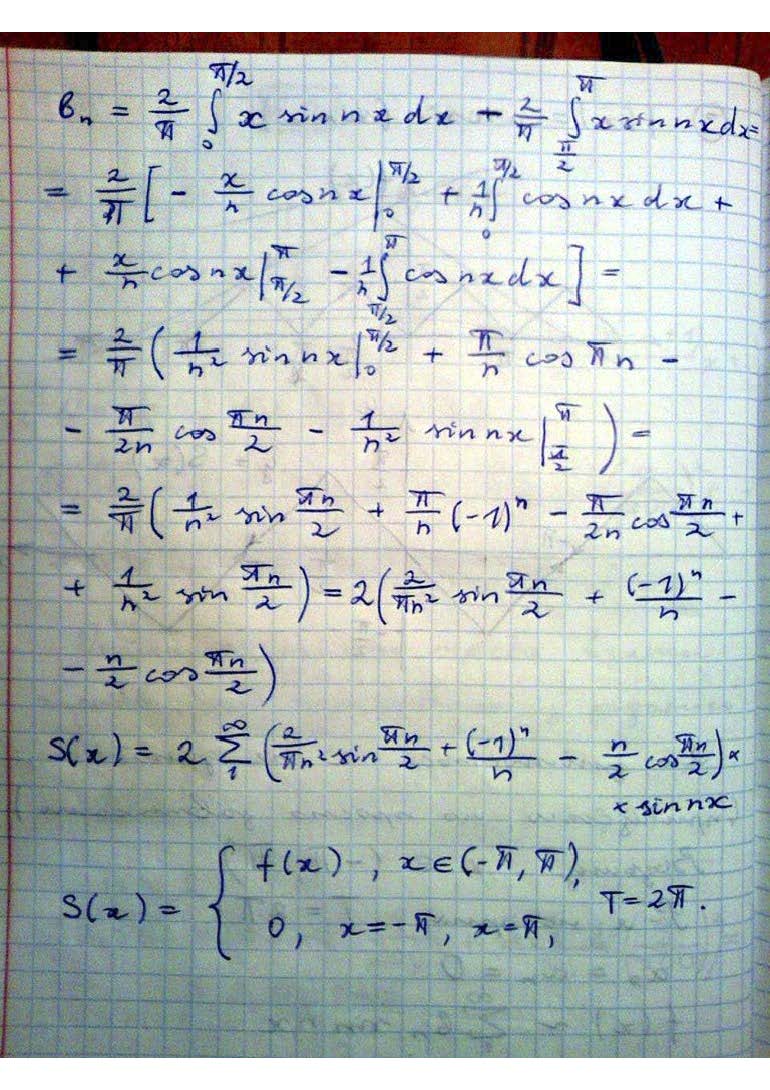 bₙ = 2/π ∫₀^{π/2} x sin nx dx + 2/π ∫_{π/2}^{π} x sin nx dx =
= 2/π [ - x/n cos nx |₀^{π/2} + 1/n ∫₀^{π/2} cos nx dx +
+ x/n cos nx |_{π/2}^{π} - 1/n ∫_{π/2}^{π} cos nx dx ] =
= 2/π ( 1/n² sin nx |₀^{π/2} + π/n cos πn -
- π/2n cos πn/2 - 1/n² sin nx |_{π/2}^{π} ) =
= 2/π ( 1/n² sin πn/2 + π/n (-1)ⁿ - π/2n cos πn/2 +
+ 1/n² sin πn/2 ) = 2 ( 2/πn² sin πn/2 + (-1)ⁿ/n -
- n/2 cos πn/2 )
S(x) = 2 ∑₁^∞ ( 2/πn² sin πn/2 + (-1)ⁿ/n - n/2 cos πn/2 ) ×
× sin nx
S(x) = { f(x) - , x ∈ (-π, π),
0, x = -π, x = π, T = 2π.